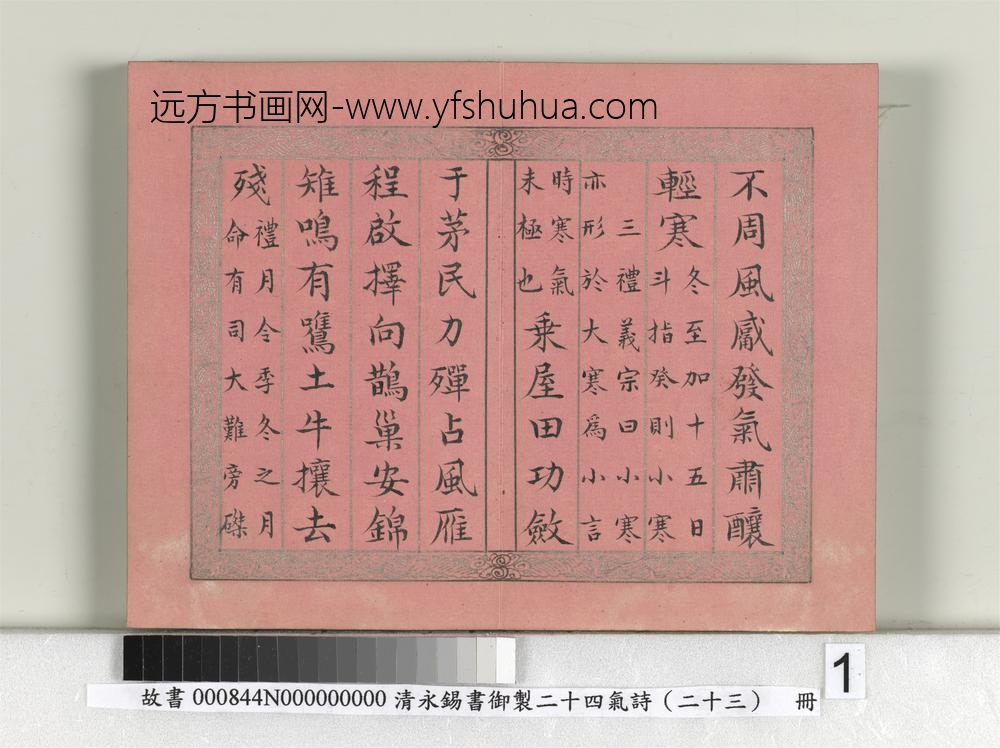 远方书画网-www.yfshuhua.com
不周風觱發氣肅釀
輕寒
冬至加十五日
斗指癸則小寒
三禮義宗曰小寒
亦形於大寒爲小言
時寒氣
未極也
乗屋田功斂
于茅民力殫占風雁
程啟擇向鵲巢安錦
雉鳴有鷕土牛攘去
殘
禮月令季冬之月
命有司大難旁磔
1
故書 000844N000000000 清永錫書御製二十四氣詩（二十三） 冊